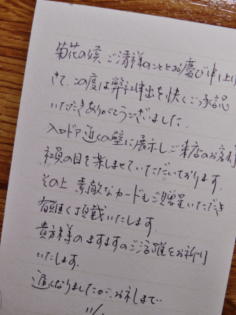 菊花の候、ご清祥のこととお慶び申し上げ
さて、この度は弊社申出を快くご承認
いただきありがとうございました。
入口ドア近くの壁に展示しご来店のお客様
の目を楽しませていただいております。
その上 素敵なカードもご贈呈いただき
有難く頂戴いたします。
貴方様のますますのご活躍をお祈り
いたします。
遅くなりましたがお礼まで
11/